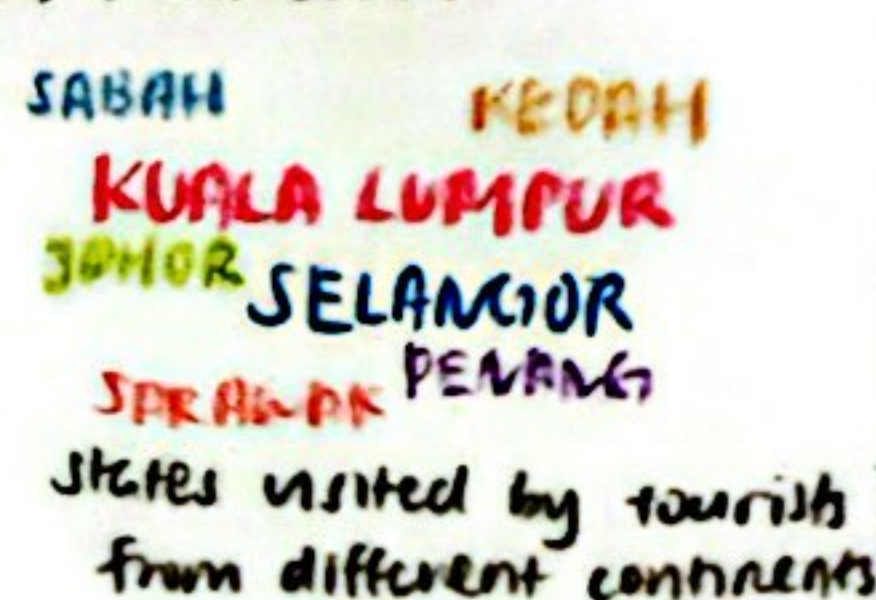 SABAH KEDAH
KUALA LUMPUR
JOHOR SELANGOR
SARAWAK PENANG
states visited by tourists
from different continents